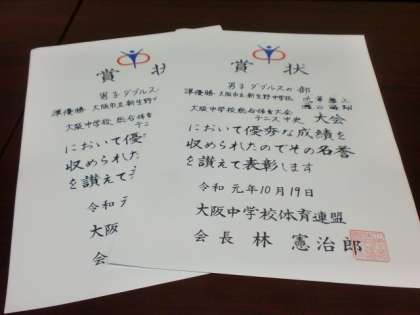 賞状
男子ダブルスの部
準優勝 大阪市立新生野中学校
大阪中学校総合体育大会
テニス中央 大会
において優秀な成績を
収められたのでその名誉
を讃えて表彰します
令和元年10月19日
大阪中学校体育連盟
会長 林 憲治郎
賞 状
男子ダブルス
準優勝 大阪市立新生野
大阪中学校総合体育
テニ
において優
収められた
を讃えて
令和
大阪
会